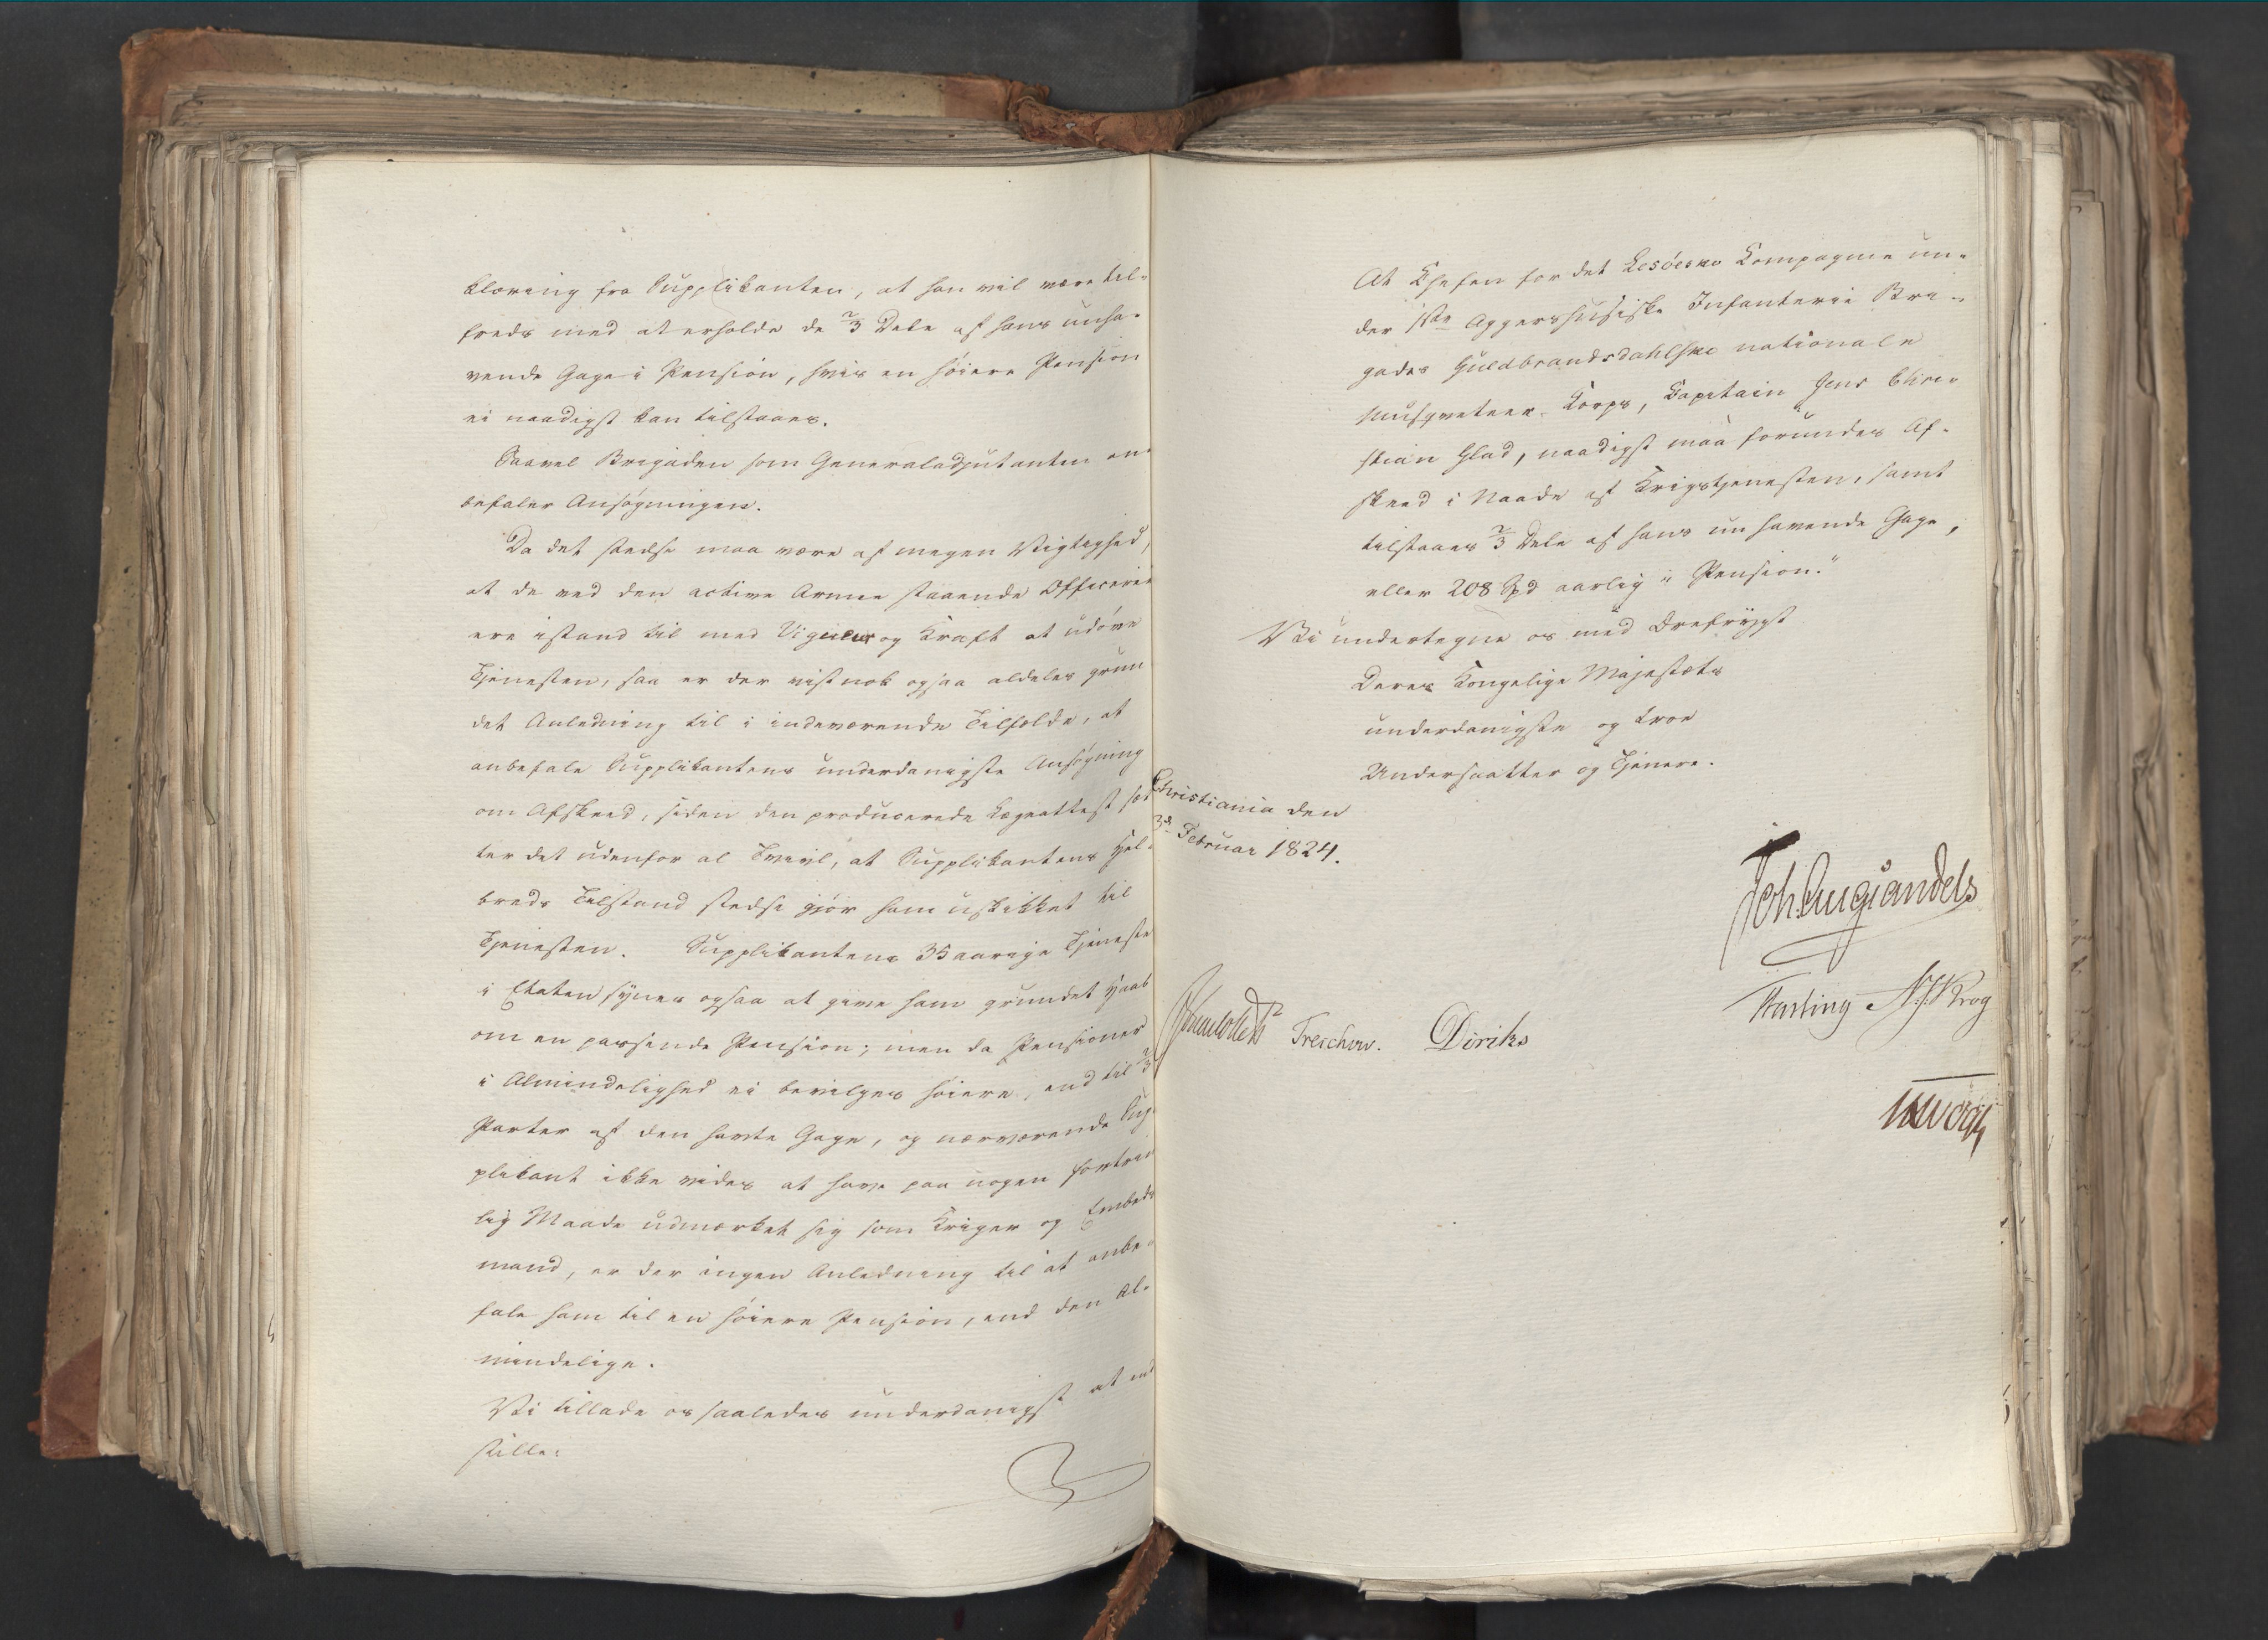 klæring fra Supplikanten, at han vil være til-
freds med at erholde de 2/3 Dele af hans unha-
vende Gage i Pension, hvis en høiere Pension
ei naadigst kan tilstaaes.
Saavel Brigaden som Generaladjutanten an-
befaler Ansøgningen.
Da det stedse maa være af megen Vigtighed,
at de ved den active Armee staaende Officerer
ere istand til med Vigueur og Kraft at udøve
Tjenesten, saa er der vistnok ogsaa aldeles grun
det Anledning til i indeværende Tilfælde, at
anbefale Supplikantens underdanigste Ansøgning
om Afskeed, siden den producerede Lægeattest sæt
ter det udenfor al Tvivl, at Supplikantens Hel-
breds Tilstand stedse gjør ham uskikket til
Tjenesten. Supplikantens 35 aarige Tjeneste
i Etaten synes ogsaa at give ham grundet Haab
om en passende Pension; men da Pensioner
i Almindelighed ei bevilges høiere, end til 2/3
Parter af den havte Gage, og nærværende Sup
plikant ikke vides at have paa nogen fortrin
lig Maade udmærket sig som Kriger og Embeds
mand, er der ingen Anledning til at anbe-
fale ham til en høiere Pension, end den al-
mindelige.
Vi tillade os saaledes underdanigst at ind
stille:
At Chefen for det Lesøeske Compagnie un-
der 1ste Aggershusiske Infanterie Bri-
gades Guldbrandsdahlske nationale
Musqveteer-Korps, Capitain Jens Chri-
stian Glad, naadigst maa forundes Af-
skeed i Naade af Krigstjenesten, samt
tilstaaes 2/3 Dele af hans unhavende Gage,
eller 208 Spd aarlig i Pension."
Vi undertegne os med Ærefrygt
Deres Kongelige Majestæts
underdanigste og troe
Undersaatter og Tjenere.
Christiania den
3de Februar 1824.
Joh. Aug. Sandels
Sommerhielm Treschow. Diriks Fasting N. J. Krog
Vogt